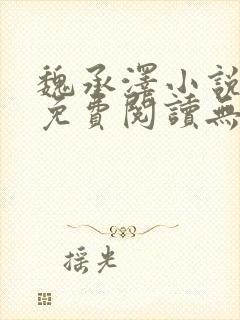 魏承澤小說
免費閱讀無
摇光